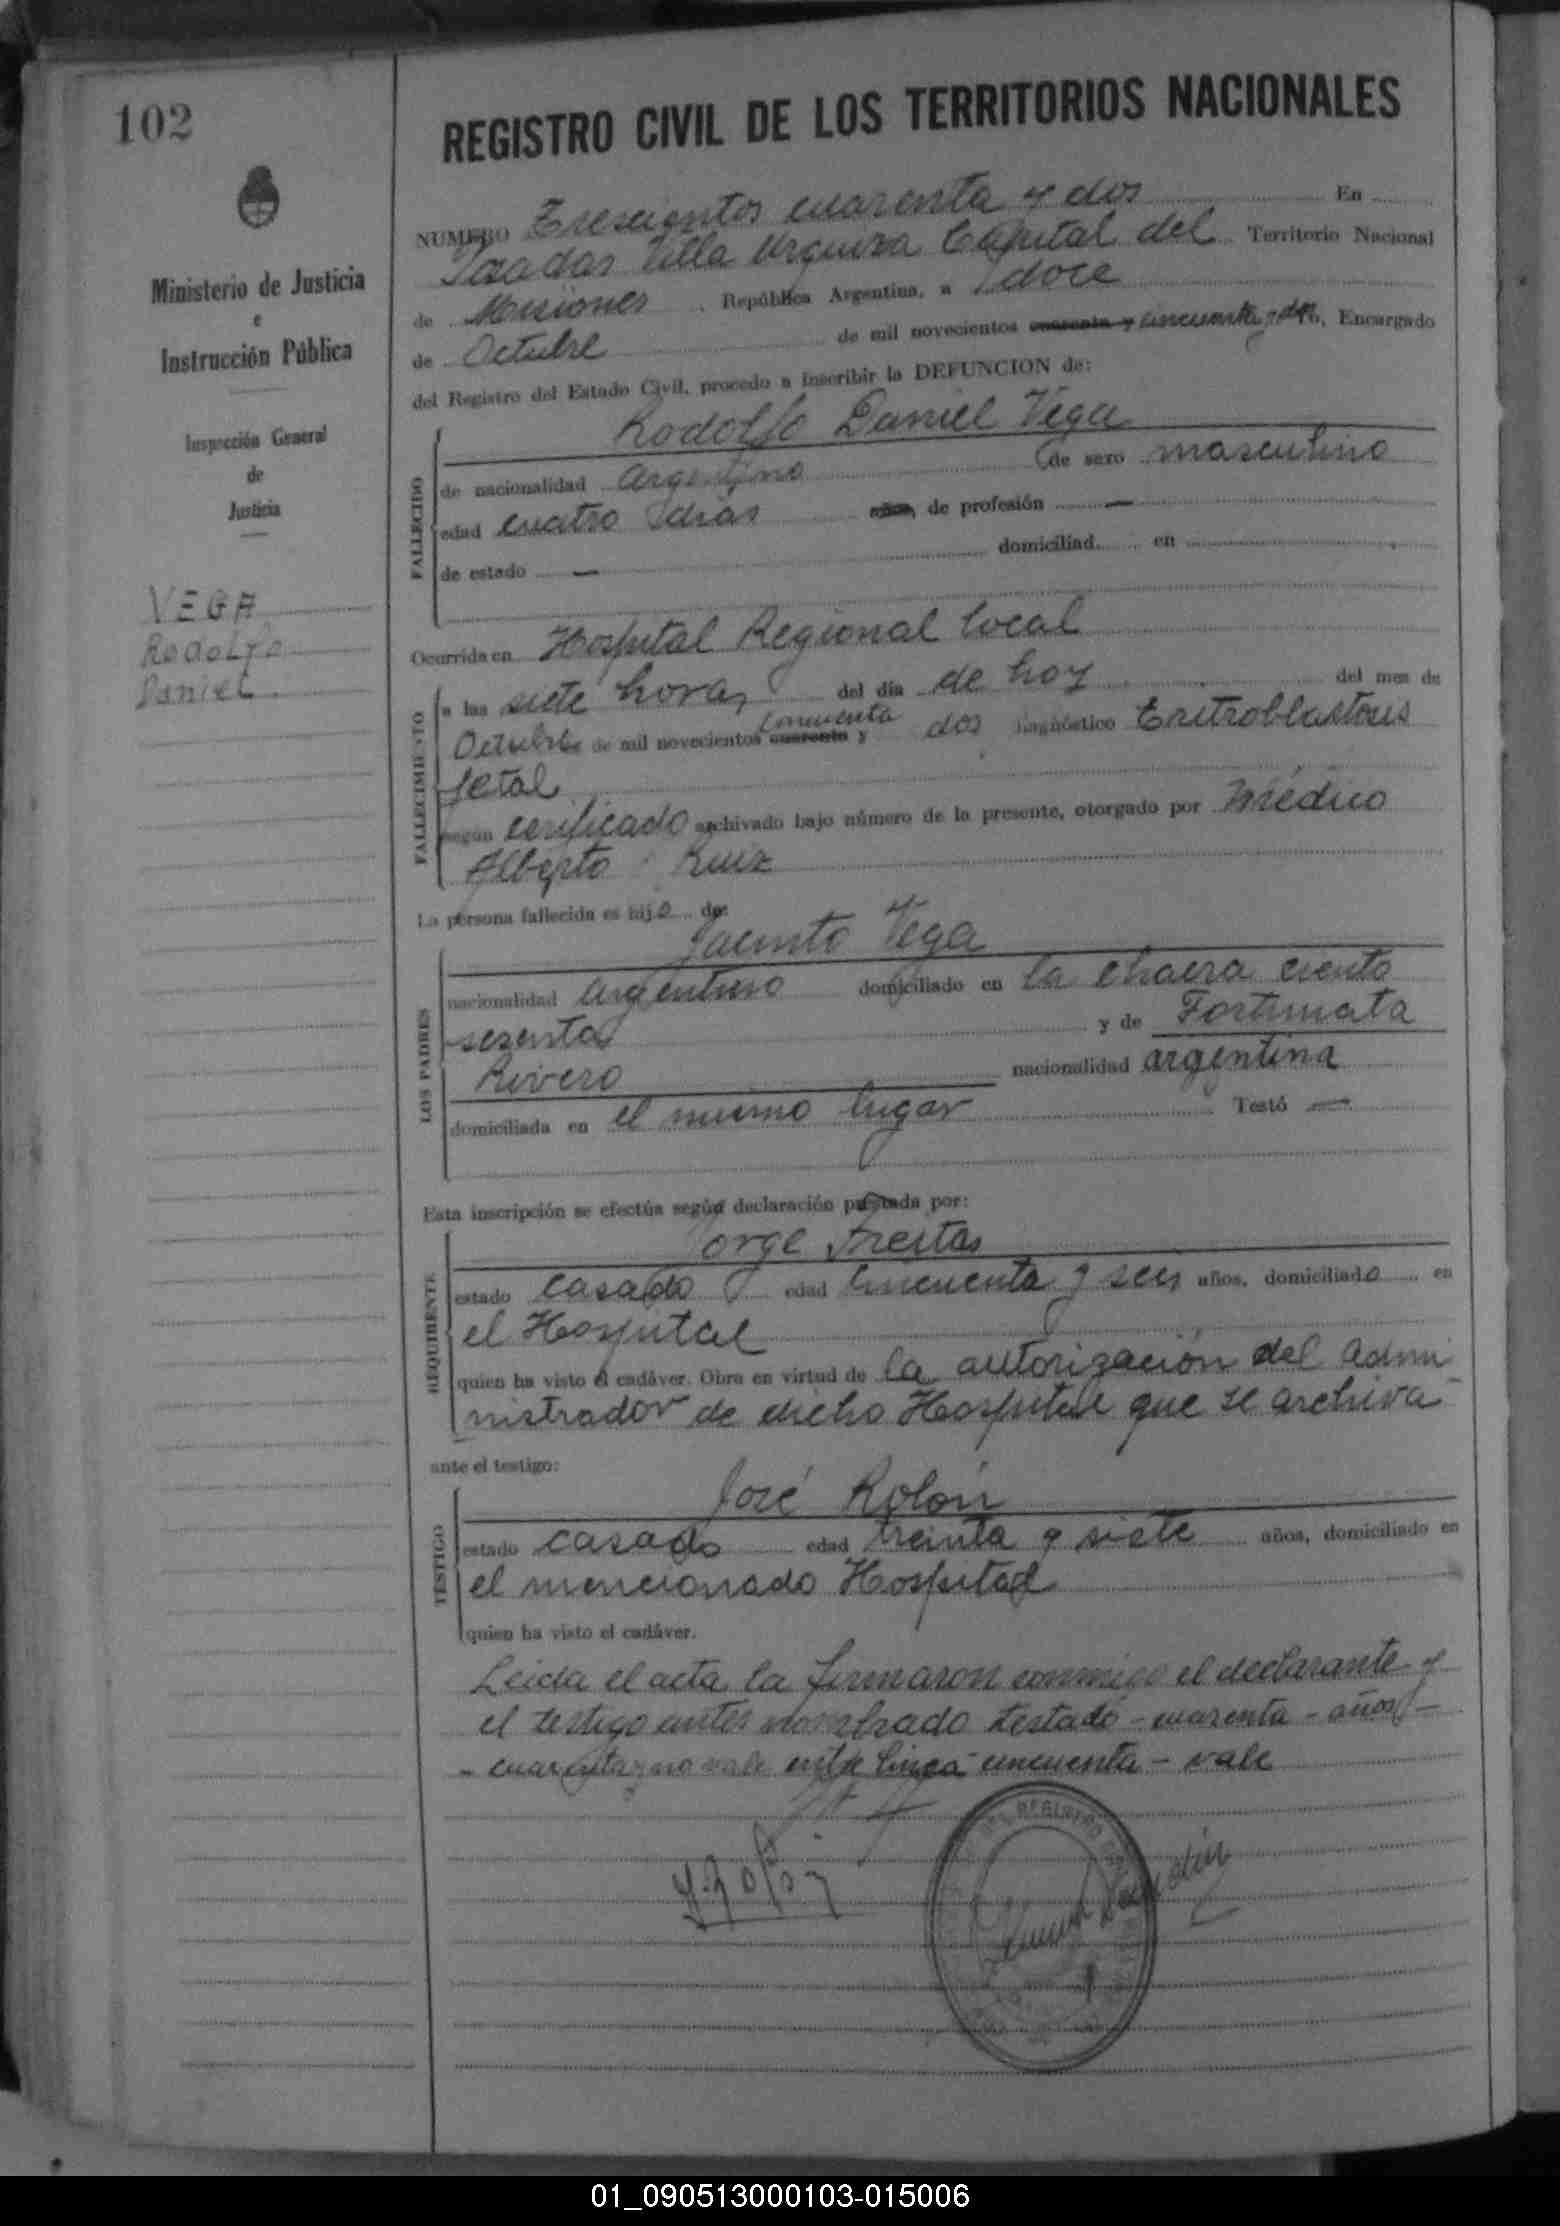 102
REGISTRO CIVIL DE LOS TERRITORIOS NACIONALES
Ministerio de Justicia
e
Instrucción Pública
Inspección General
de
Justicia
VEGA
Rodolfo
Daniel
NUMERO Trescientos cuarenta y dos En
Posadas Villa Urquiza Capital del Territorio Nacional
de Misiones República Argentina, a doce
de Octubre de mil novecientos cuarenta y cincuenta y dos, Encargado
del Registro del Estado Civil, procedo a inscribir la DEFUNCION de:
Rodolfo Daniel Vega
FALLECIDO
de nacionalidad Argentino de sexo masculino
edad cuatro días años, de profesión —
de estado — domiciliad en
Ocurrida en Hospital Regional local
FALLECIMIENTO
a las siete horas, del día de hoy del mes de
cincuenta
Octubre de mil novecientos cuarenta y dos diagnóstico Eritroblastosis
fetal
según cerificado archivado bajo número de la presente, otorgado por médico
Alberto Ruiz
La persona fallecida es hijo de:
Jacinto Vega
LOS PADRES
nacionalidad argentino domiciliado en la chacra ciento
sesenta y de Fortunata
Rivero nacionalidad argentina
domiciliada en el mismo lugar Testó —
Esta inscripción se efectúa según declaración prestada por:
Jorge Freitas
REQUIRENTE
estado casado edad cincuenta y seis años, domiciliado en
el Hospital
quien ha visto el cadáver. Obra en virtud de la autorización del admi
nistrador de dicho Hospital que se archiva
ante el testigo:
José Rolón
TESTIGO
estado casado edad treinta y siete años, domiciliado en
el mencionado Hospital
quien ha visto el cadáver.
Leida el acta la firmaron conmigo el declarante y
el testigo antes nombrado testado - cuarenta - años -
- cuarenta y no vale entre linea - cincuenta - vale
REGISTRO
01_090513000103-015006